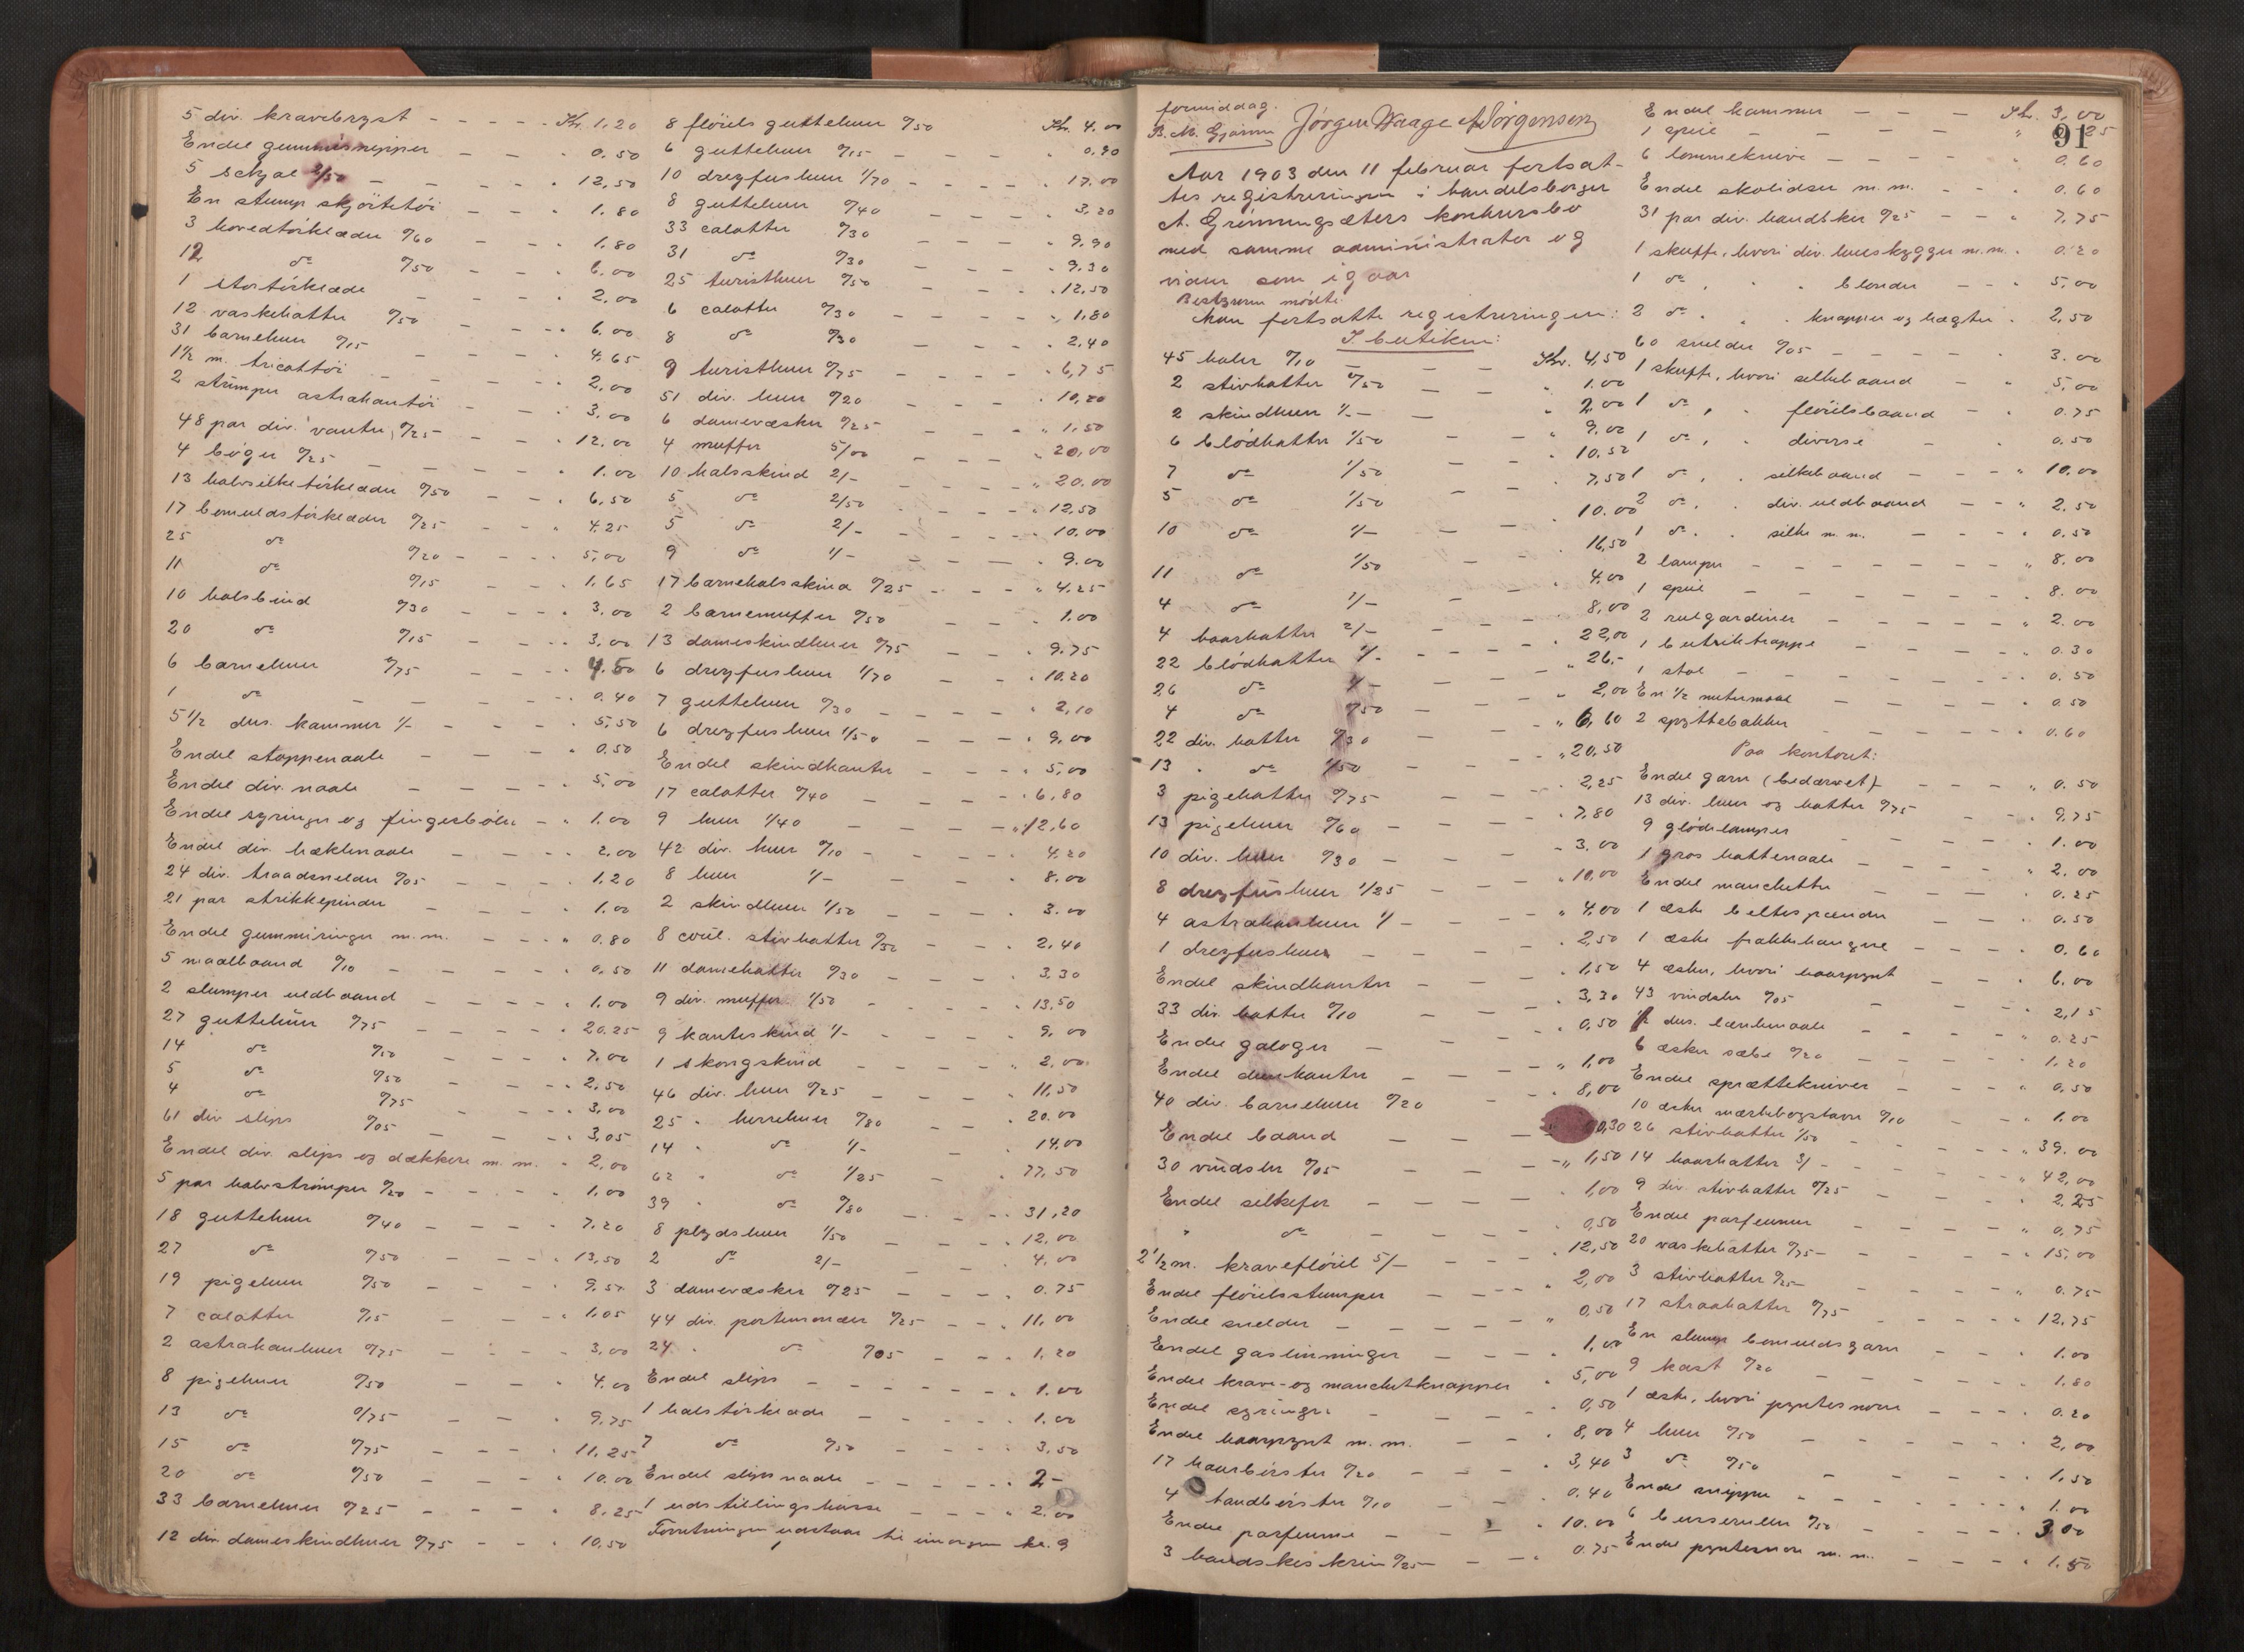 5 div. kravebryst - - - - - Kr. 1.20
Endel gummisnipper - - - 0.50
5 schjal 2/50 - - - - 12,50
En stump skjörtetöi - - - 1.80
3 hovedtörklæder 0/60 - - - 1.80
12 do 0/50 - - - 6.00
1 stortörklæde - - - - 2,00
12 vaskehatter 0/50 - - - 6.00
31 barnehuer 0/15 - - - 4.65
1 1/2 m. tricottöi - - - - 2,00
2 stumper astrakantöi - - - 3,00
48 par div. vanter 0/25 - - - 12,00
4 böger 0/25 - - - - 1.00
13 halvsilketörklæder 0/50 - - - 6,50
17 bomuldstörklæder 0/25 - - - 4.25
25 do 0/20 - - - - 5,00
11 do 0/15 - - - - 1.65
10 halsbind 0/30 - - - 3,00
20 do 0/15 - - - 3.00
6 barnehuer 0/75 - - - 4.50
1 do - - - - 0.40
5 1/2 dus. kammer 1/- - - - 5,50
Endel stoppenaale - - - 0.50
Endel div. naale - - - - 5,00
Endel syringe og fingerböle - 1.00
Endel div. hæklenaale - - - 2.00
24 div. traadsnelder 0/05 - - - 1.20
21 par strikkepinder - - - 1.00
Endel gummiringer m.m. - - - 0.80
5 maalbaand 0/10 - - - - 0.50
2 slumper uldbaand - - - - 1.00
27 guttehuer 0/75 - - - - 20.25
14 do 0/50 - - - - 7.00
5 do 0/50 - - - - 2,50
4 do 0/75 - - - - 3,00
61 div slips 0/05 - - - - 3,05
Endel div. slips og dækkere m.m. - 2,00
5 par halvströmper 0/20 - - - 1.00
18 guttehuer 0/40 - - - - 7.20
27 do 0/50 - - - - 13,50
19 pigehuer 0/50 - - - - 9.50
7 calotter 0/15 - - - 1.05
2 astrakanhuer 0/75 - - - 3,00
8 pigehuer 0/50 - - - 4.00
13 do 0/75 - - - 9,75
15 do 0/75 - - - - 11,25
20 do 0/50 - - - 10.00
33 barnehuer 0/25 - - - 8,25
12 div. dameskindhuer 0/75 - - - 10,50
8 flöiels guttehuer 0/50 Kr. 4.00
6 guttehuer 0/15 - - - - 0,90
10 dreyfushuer 1/70 - - - - 17.00
8 guttehuer 0/40 - - - 3,20
33 calotter 0/30 - - - 9.90
31 do 0/30 - - - 9.30
25 turisthuer 0/50 - - - 12,50
6 calotter 0/30 - - - - 1,80
8 do 0/30 - - - 2.40
9 turisthuer 0/75 - - - - 6,75
51 div. huer 0/20 - - - - 10,20
6 damevæsker 0/25 - - - - 1.50
4 muffer 5/00 - - - - 20,00
10 halsskind 2/- - - - - 20.00
5 do 2/50 - - - - 12,50
5 do 2/- - - - - 10.00
9 do 1/- - - - - 9.00
17 barnehalsskind 0/25 - - - 4,25
2 barnemuffer 0/50 - - - 1.00
13 dameskindhuer 0/75 - - - 9.75
6 dreyfushuer 1/70 - - - 10.20
7 guttehuer 0/30 - - - - 2,10
6 dreyfushuer 1/50 - - - 9,00
Endel skindkanter - - - 5,00
17 calotter 0/40 - - - - 6,80
9 huer 1/40 - - - - 12,60
42 div. huer 0/10 - - - - 4.20
8 huer 1/- - - - - 8.00
2 skindhuer 1/50 - - - - 3.00
8 coul. stivhatter 0/30 - - - 2,40
11 damehatter 0/30 - - - 3.30
9 div. muffer 1/50 - - - 13,50
9 kanteskind 1/- - - - 9,00
1 skongskind - - - - 2,00
46 div. huer 0/25 - - - - 11,50
25 " herrehuer 0/80 - - - 20.00
14 " do 1/- - - - 14,00
62 " do 1/25 - - - 77,50
39 " do 0/80 - - - 31,20
8 plydshuer 1/50 - - - - 12,00
2 do 2/- - - - 4,00
3 damevæsker 0/25 - - - - 0.75
44 div. portemonæer 0/25 - - - 11,00
24 " do 0/05 - - - 1,20
Endel slips - - - - - - 1.00
1 halstörklæde - - - - - 1.00
7 do 0/50 - - - - 3,50
Endel slipsnaale - - - - - 2-
1 udstillingskasse - - - - 2.00
Forretningen udstaar til imorgen kl. 9
formiddag.
B. M. Gjærum Jörgen Waage A. Sörgensen
Aar 1903 den 11 februar fortsat-
tes registreringen i handelsborger
A. Grönningsæters konkursbo
med samme administrator og
vidner som igaar
Bestyreren mödte.
Man fortsatte registreringen:
I butiken:
45 huer 0/10 - - - Kr. 4,50
2 stivhatter 0/50 - - - 1.00
2 skindhuer 1/- - - 2,00
6 blödhatter 1/50 - - - 9.00
7 do 1/50 - - 10.50
5 do 1/50 - - 7,50
10 do 1/- - - 10.00
11 do 1/50 - - 16,50
4 do 1/- - - 4,00
4 haarhatter 2/- - - - 8,00
22 blödhatter 1/- - - - 22,00
26 do 1/- - - - 26,-
4 do 0/50 - - - 2,00
22 div. hatter 0/30 - - - 6,60
13 " do 1/50 - - 20,50
3 pigehatter 0/75 - - - 2,25
13 pigehuer 0/60 - - - 7,80
10 div. huer 0/30 - - - 3.00
8 dreyfushuer 1/25 - - - 10,00
4 astrakanhuer 1/- - - - 4,00
1 dreyfushuer - - - 2,50
Endel skindkanter - - - 1,50
33 div. hatter 0/10 - - - 3,30
Endel galoger - - - - 0,50
Endel dunkanter - - - - 1,00
40 div. barnehuer 0/20 - - - 8,00
Endel baand - - - - 0,30
30 vindsler 0/05 - - - 1,50
Endel silkefor - - - - 1,00
" do - - - - 0,50
2 1/2 m. kraveflöiel 5/- - - - 12,50
Endel flöielsstumper - - - - 2,00
Endel snelder - - - - - 0,50
Endel gaslinninger - - - - 1,00
Endel krave- og manchetknapper - 5,00
Endel syringe - - - - 0,50
Endel haarpynt m.m. - - - 8,00
17 haarbörster 0/20 - - - 3,40
4 tandbörster 0/10 - - - 0.40
Endel parfeume - - - - 10.00
3 handskeskrin 0/25 - - - 0.75
Endel kammer - - - - Kr. 3,00
91
1 speil - - - - - " 0.25
6 lommeknive - - - - " 0.60
Endel skolidser m.m. - - - 0.60
31 par div. handsker 0/25 - - " 7,75
1 skuffe, hvori div. hueskygger m.m. " 0.20
1 do , " " blonder - - - 5,00
2 do , " " knapper og hægter " 2,50
60 snelder 0/05 - - - - - 3.00
1 skuffe, hvori silkebaand - - " 5,00
1 do , " flöielsbaand - " 0.75
1 do , " diverse - " 0.50
1 do , " silkebaand - - " 10,00
2 do , " div. uldbaand - - " 2.50
1 do , " silke m.m. - - - " 0.50
2 lamper - - - - - - " 8.00
1 speil - - - - - - " 8.00
2 rulgardiner - - - - - " 2.00
1 butiktrappe - - - - " 0.30
1 stol - - - - - - 0.50
En 1/2 metermaal - - - - - 0.50
2 spyttebakker - - - - - " 0.60
Paa kontoret:
Endel garn (bedærvet) - - - " 0.50
13 div. huer og hatter 0/75 - - - 9.75
9 glödelamper - - - - - 1.00
1 gros hattenaale - - - - " 2.00
Endel manchetter - - - - 0.25
1 æske beltespænder - - - " 0.50
1 æske frakkehængere - - - - 0.60
4 æsker, hvori haarpynt - - " 6.00
43 vindsler 0/05 - - - - 2,15
1/2 dus. lænkenaale - - - " 0.25
6 æsker sæbe 0/20 - - - - 1.20
Endel sprætteknive - - - - " 0,50
10 æsker mærkebogstaver 0/10 - - " 1.00
26 stivhatter 1/50 - - - - " 39.00
14 haarhatter 3/- - - - - " 42,00
9 div. stivhatter 0/25 - - - " 2.25
Endel parfeumer - - - - " 0,75
20 vaskehatter 0/75 - - - - " 15,00
3 stivhatter 0/25 - - - " 0.75
17 straahatter 0/75 - - - - " 12,75
En slump bomuldsgarn - - - " 1.00
9 kost 0/20 - - - - - " 1.80
1 æske, hvori pyntesnore - - - " 0.20
4 huer 0/50 - - - - - 2,00
3 do 0/50 - - - - - 1,50
Endel snipper - - - - - - " 1.00
6 0/50 - - - - - " 3.00
Endel pyntesnore m.m. - - - " 1.50